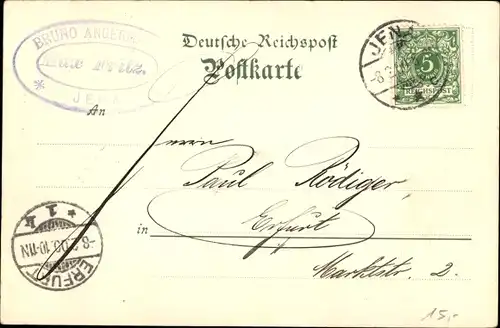 BRUNO ANGER
JENA
Deutsche Reichspost
Postkarte
JEN
5
REICHSPOST
An
Herrn
Paul Rödiger,
in Erfurt
Marktstr. 2.
ERFURT
10-11N
* 1 k
15,-